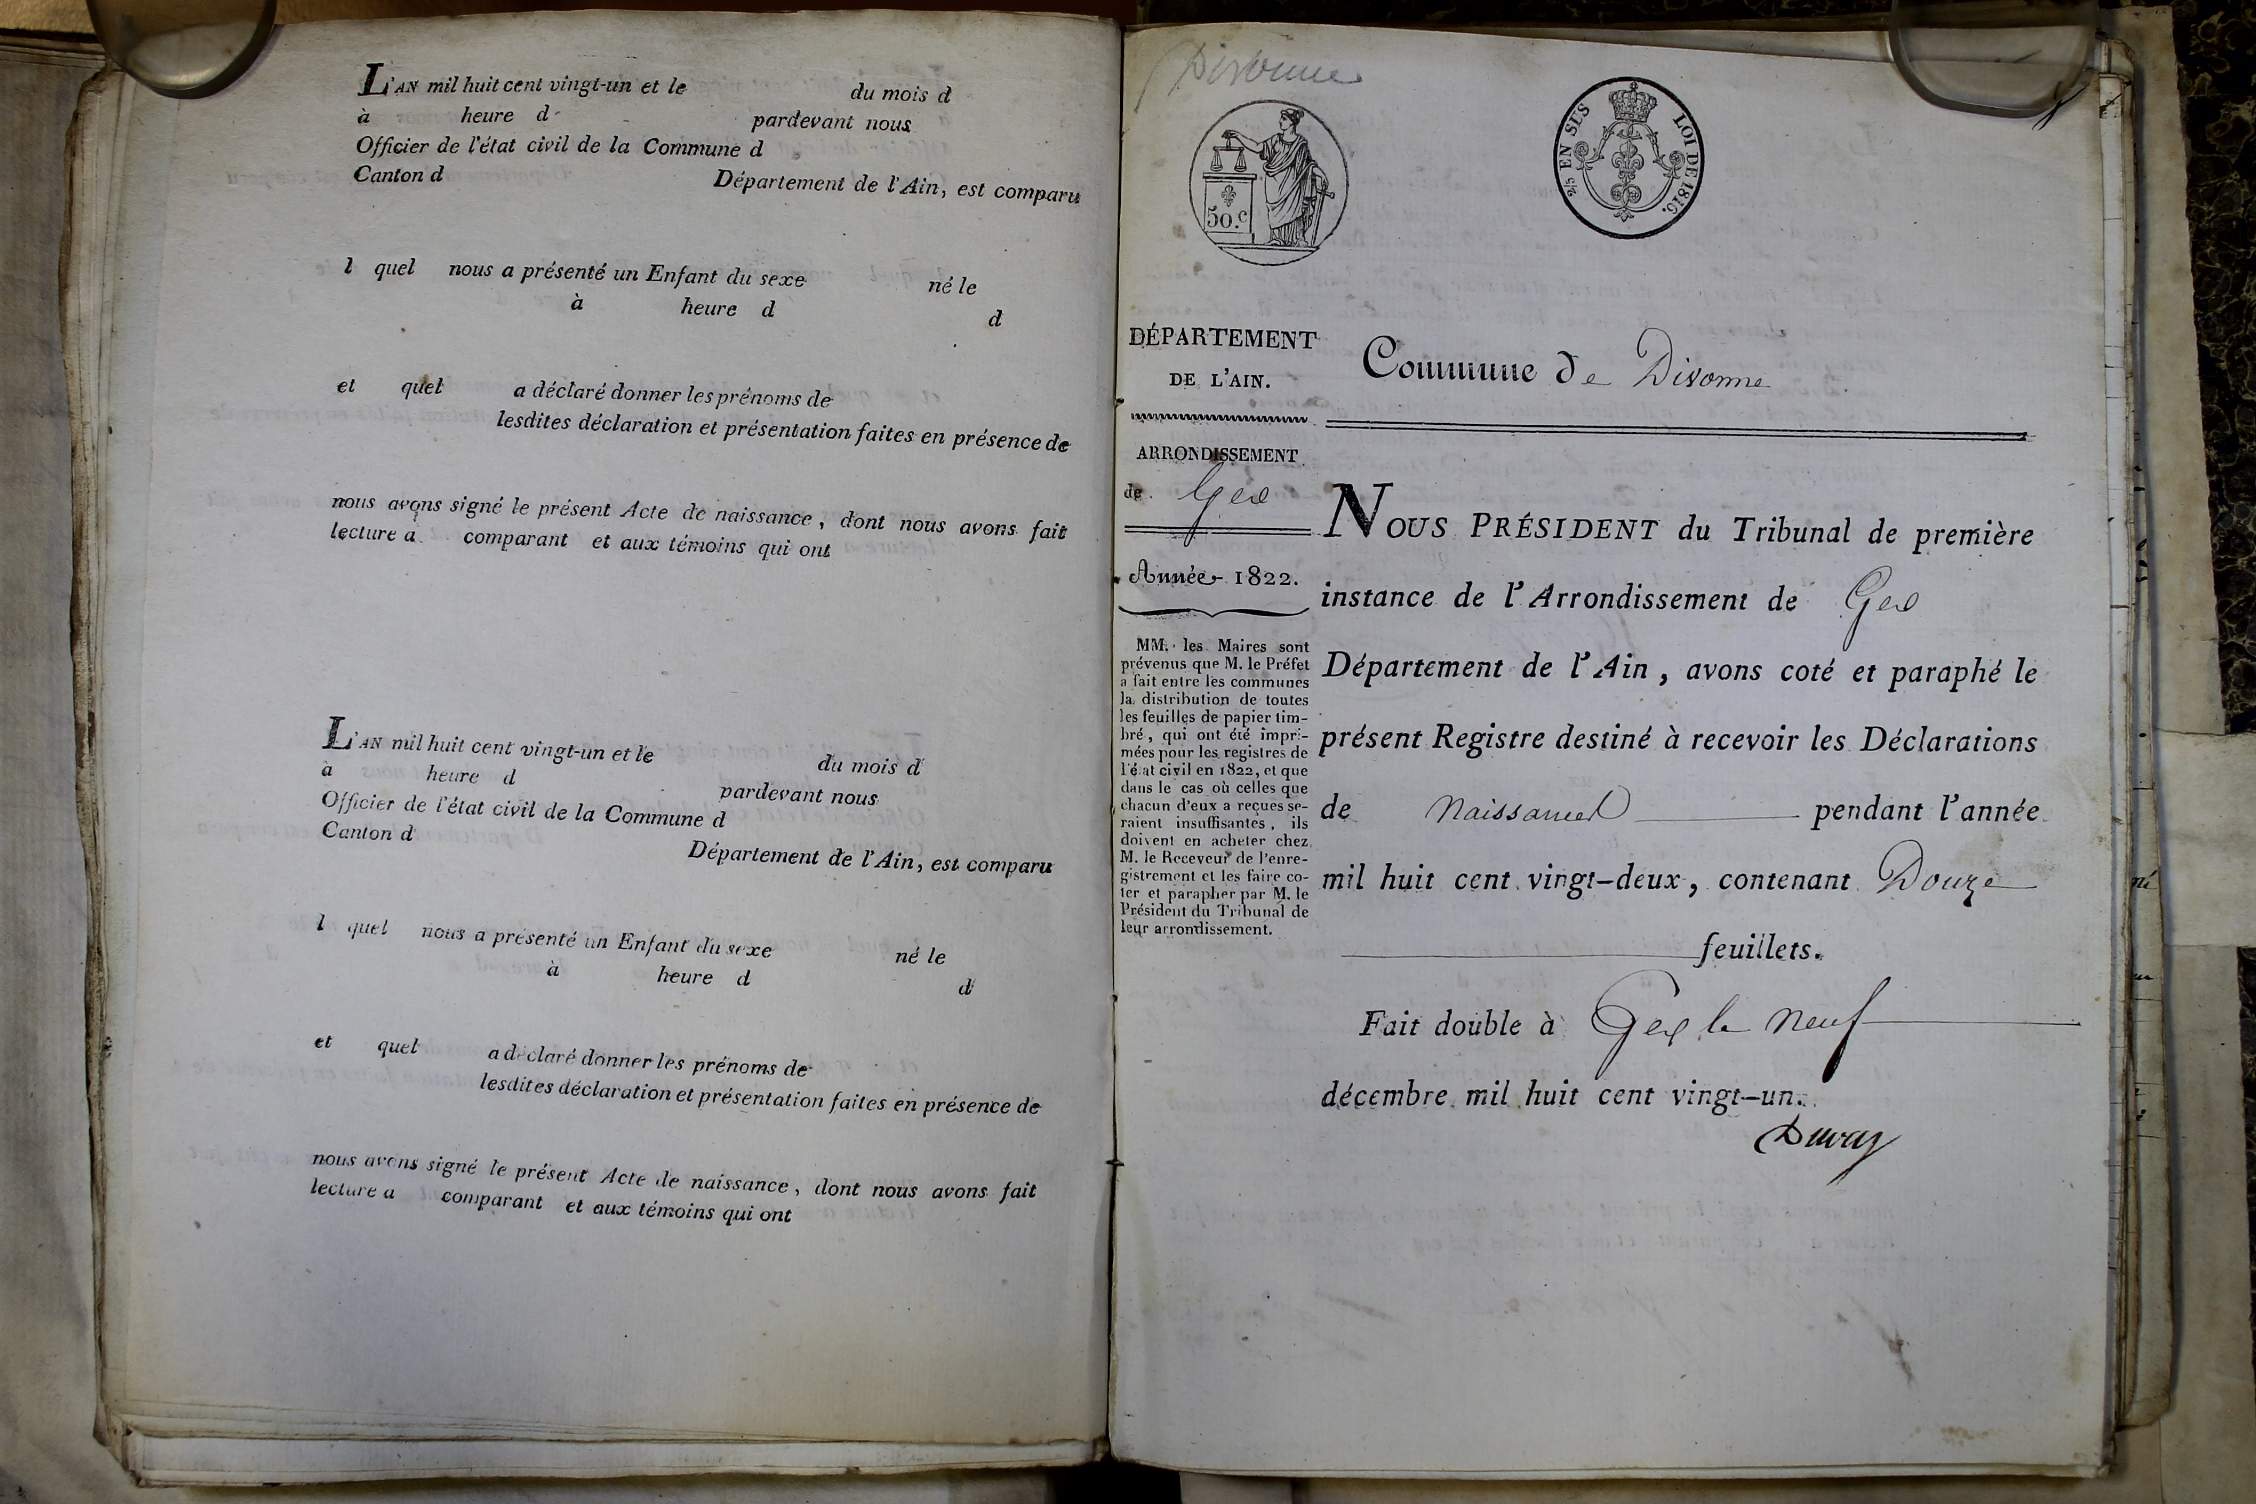 L'AN mil huit cent vingt-un et le du mois d
à heure d pardevant nous
Officier de l'état civil de la Commune d
Canton d Département de l'Ain, est comparu
l quel nous a présenté un Enfant du sexe né le
à heure d d
et quel a déclaré donner les prénoms de
lesdites déclaration et présentation faites en présence de
nous avons signé le présent Acte de naissance, dont nous avons fait
lecture a comparant et aux témoins qui ont
L'AN mil huit cent vingt-un et le du mois d
à heure d pardevant nous
Officier de l'état civil de la Commune d
Canton d Département de l'Ain, est comparu
l quel nous a présenté un Enfant du sexe né le
à heure d d
et quel a déclaré donner les prénoms de
lesdites déclaration et présentation faites en présence de
nous avons signé le présent Acte de naissance, dont nous avons fait
lecture a comparant et aux témoins qui ont
Divonne
50.c
2/5 EN SUS LOI DE 1816.
DÉPARTEMENT
DE L'AIN.
ARRONDISSEMENT
de Gex
Année 1822.
MM. les Maires sont
prévenus que M. le Préfet
a fait entre les communes
la distribution de toutes
les feuilles de papier tim-
bré, qui ont été impri-
mées pour les registres de
l'état civil en 1822, et que
dans le cas où celles que
chacun d'eux a reçues se-
raient insuffisantes, ils
doivent en acheter chez
M. le Receveur de l'enre-
gistrement et les faire co-
ter et parapher par M. le
Président du Tribunal de
leur arrondissement.
Commune de Divonne
NOUS PRÉSIDENT du Tribunal de première
instance de l'Arrondissement de Gex
Département de l'Ain, avons coté et paraphé le
présent Registre destiné à recevoir les Déclarations
de Naissances pendant l'année
mil huit cent vingt-deux, contenant Douze
feuillets.
Fait double à Gex le neuf
décembre mil huit cent vingt-un.